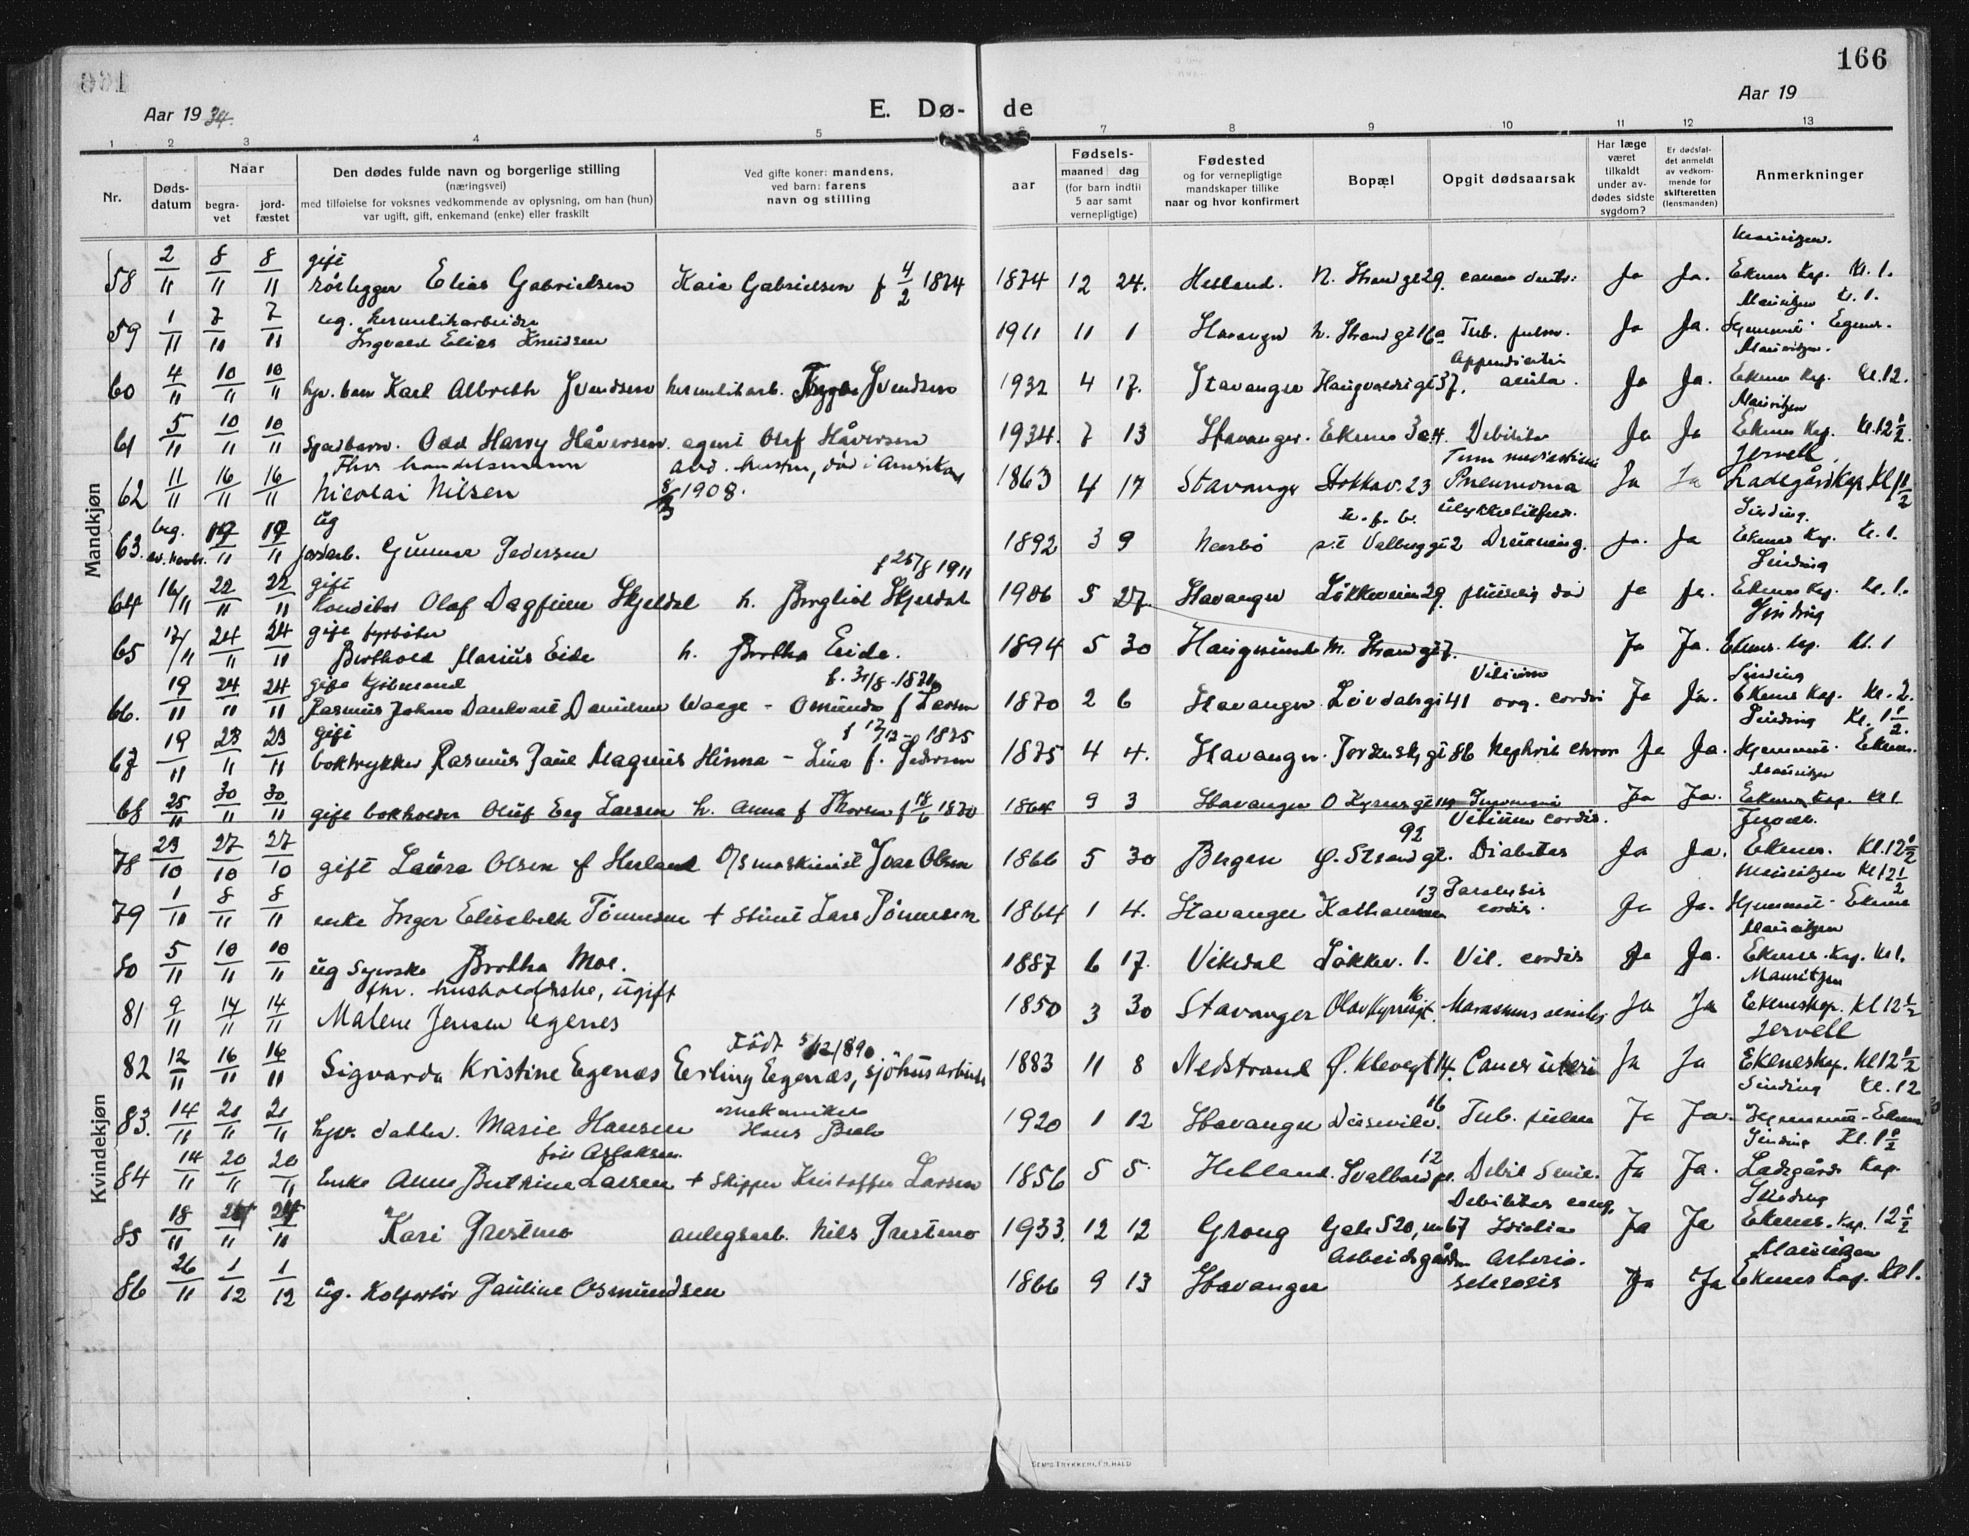 166
Aar 1934.
E. Dø-de
Aar 19
1 2 3 4 5 6 7 8 9 10 11 12 13
Nr.
Døds-datum
Naar
begra-vet
jord-fæstet
Den dødes fulde navn og borgerlige stilling
(næringsvei)
med tilføielse for voksnes vedkommende av oplysning, om han (hun)
var ugift, gift, enkemand (enke) eller fraskilt
Ved gifte koner: mandens,
ved barn: farens
navn og stilling
aar
Fødsels-
maaned dag
(for barn indtil
5 aar samt
vernepligtige)
Fødested
og for vernepligtige
mandskaper tillike
naar og hvor konfirmert
Bopæl
Opgit dødsaarsak
Har læge
været
tilkaldt
under av-
dødes sidste
sygdom?
Er dødsfal-
det anmeldt
av vedkom-
mende for
skifteretten
(lensmanden)
Anmerkninger
Mandkjøn
58 2/11 8/11 8/11 gift rørlegger Elias Gabrielsen Kaia Gabrielsen f 4/2 1874 1874 12 24. Helland. N. Strandgt 29. Ja Ja. Ekenes Kap. Kl. 1.
59 1/11 7/11 7/11 ug. hermetikarbeider Ingvald Elias Knudsen 1911 11 1 Stavanger N. Strandgt 16a Tub. pulm. Ja Ja. Mauritzen Kl. 1. Hjemmet Egenes.
60 4/11 10/11 10/11 hjv. barn Karl Albreth Svendsen hermetikarb. Trygve Svendsen 1932 4 17. Stavanger Haugvaldsgt 37. Appendicitis acuta. Ja Ja. Mauritzen. Ekenes Kap. Kl. 12.
61 5/11 10/11 10/11 Spædbarn. Odd Harry Håversen. agent Olaf Håversen 1934. 7 13 Stavanger. Ekenes 3 Debilitas Ja Ja Mauritzen Ekenes Kap. Kl. 12 1/2.
62 11/11 16/11 16/11 Fhv. handelsmann Nicolai Nilsen avd. hustru, død i Amerika 1908. 1863 4 17 Stavanger Stokkav. 23 Pneumonia Ja Ja Jervell Ladegårdskap Kl 1 1/2
63. beg. 19/11 19/11 ug jordarb. Gunnar Pedersen 1892 3 9 Nærbø Valbergt 2 ulykkestilfæll. Drukning. Ja. Ja Sinding. Ekenes Kap. Kl. 1.
64 16/11 22/11 22/11 gift Konditor Olaf Dagfinn Skjeldal h. Borghild Skjeldal f 25/8 1911 1906 5 27. Stavanger Løkkeveien 29. plutselig død Ja Ja. Sinding Ekenes Kap. Kl. 1.
65 17/11 24/11 24/11 gift fyrbøter Berthold Marius Eide h. Bertha Eide. 1894 5 30 Haugesund N. Strandgt 7. Ja Ja. Sinding Ekenes. Kap. Kl. 1
66. 19/11 24/11 24/11 gift Rasmus Johan Dankvart Danielsen Waage - Osmunda f Larsen f. 31/8 1870 2 6 Stavanger. Løvdalsgt 41 Vitium org. cordis Ja Ja. Sinding Ekenes Kap. Kl. 2.
67 19/11 23/11 23/11 gift boktrykker Rasmus Paul Magnus Hinna - Lina f. Pedersen f 17/12 1875 1875 4 4. Stavanger. Tordenskj. gt 86 Nephrit chron Ja Ja. Sinding Kl. 1 1/2. Hjemmet. Ekenes.
68 25/11 30/11 30/11 gift bokholder Oluf Eeg Larsen h. Anna f Thorsen f 18/6 1870 1864 9 3 Stavanger O Kyrresgt Vitium cordis. Ja Ja. Mauritzen Ekenes Kap. Kl 1
Kvindekjøn
78 23/10 27/10 27/10 gift Laura Olsen f Herland D/S maskinist Ivar Olsen 1866 5 30 Bergen Ø. Strandgt. 92 Diabetes Ja Ja. Jervell. Ekenes. Kl. 12 1/2
79 1/10 8/11 8/11 enke Inger Elisabeth Tønnesen + Lars Tønnesen 1864 1 4. Stavanger 13 Paralysis cordis. Ja Ja. Mauritzen Kl 12 1/2 Hjemmet - Ekenes
80 5/11 10/11 10/11 ug syerske Bertha Moe. 1887 6 17. Vikedal Løkkev. 1. Vit. cordis Ja Ja. Mauritzen Ekenes. Kap. Kl 1.
81 9/11 14/11 14/11 fhv. husholderske, ugift Malene Jensen Egenes 1850 3 30 Stavanger Olav Kyrresgt. 16 Marasmus senilis Ja Ja Mauritzen Ekeneskap. Kl 12 1/2
82 12/11 16/11 16/11 Sigvarda Kristine Egenæs Født 5/12 1890 Erling Egenæs, sjøhusarbeider 1883 11 8 Nedstrand Ø. Klevegt 14. Cancer uteri Ja Ja Jervell Ekeneskap. Kl 12 1/2
83. 14/11 21/11 21/11 hjv. datter. Marie Hansen mekaniker Hans 1920 1 12 Stavanger Dusevikv. 16 Tub. pulm Ja Ja. Sinding Kl. 12 Hjemmet - Ekenes
84 14/11 20/11 20/11 Enke Anne Bertine Larsen født Aslaksen + skipper Kristoffer Larsen 1856 5 5. Helland. Svalbardgt. 12 Debil Senil. Ja Ja. Sinding Kl. 1 1/2 Ladegårds Kap.
85 18/11 24/11 24/11 Kari Prestmo anlegsarb. Nils Prestmo 1933. 12 12 Grong Gate 520, nr 67 Debilitas cong. Ja Ja Sinding Ekenes. Kap. 12 1/2
86 26/11 1/12 1/12 ug. Kolportør Pauline Osmundsen 1866 9 13 Stavanger Arbeidsgården Arterio-sclerosis Ja Ja Mauritzen Ekenes Kap. Kl 1.
SEM'S TRYKKERI, FR.HALD